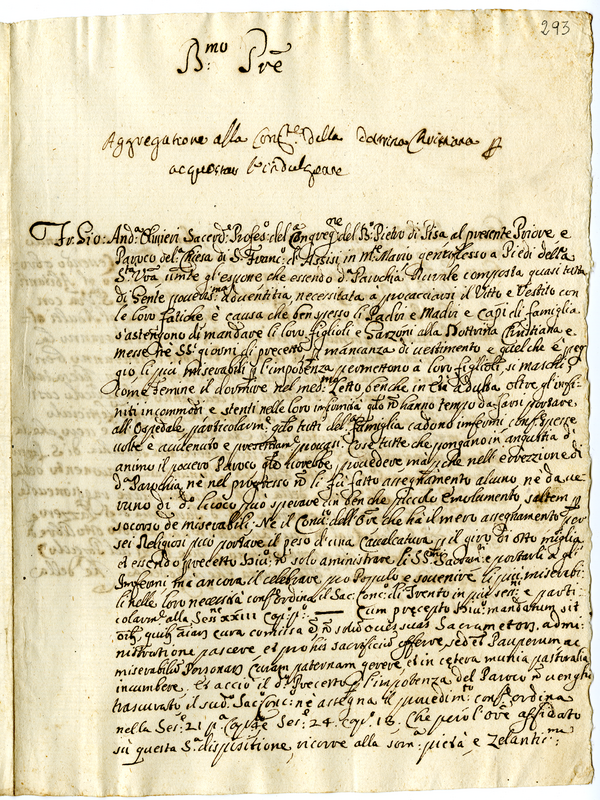 293
B:mo Pre
Aggregatione alla Conf.te della dottrina Christiana p
acquistar l'indulgenze
Fr. Gio: And.a Olivieri Sacerd: Profes.o del Congreg.ne del B.o Pietro di Pisa al presente Priore e
Paroco del Chiesa di S. Franc.o d'Assisi in M.te Mario gentilesso a Piedi della
S.ta V.ra umte gl'espone che essendo d.a Parochia Rurale composta quasi tutta
di Gente poveris.ma adventitia, necessitata a procacciarsi il Vitto e Vestito con
le loro fatiche, è causa che ben spesso li Padri e Madri e Capi di famiglia
s'astengono di mandare li loro figlioli e Garzoni alla Dottrina Cristiana e
messe ne SS.i giorni di precetto p mancanza di vestimento e quel che è peg
gio li più miserabili p l'impotenza permettono a loro figlioli, si maschi
come femine il dormire nel med.mo Letto benche in età adulta, oltre gl'infi
niti incommodi e stenti nelle loro infirmità non hanno tempo da farsi portare
all'Ospedale particolarm.e q.do tutti del famiglia cadono infermi conf. spesse
volte è accaduto e Cose tutte che pongano in angustia d'
animo il povero Paroco provedere mà che nell'erezzione di
d.a Parochia, ne nel progresso li fu fatto assegnamento alcuno, nè da ve
runo di d.o loco può sperare un ben che piccolo Emolumento saltem p
socorso de miserabili: Ne il Conv.o dell'Ore che hà il mero assegnamento per
sei Religiosi può portare il peso d'una Cavalcatura p il giro di otto miglia
et essendo precetto Div.o non solo aministrare li SS.mi Sacram.ti e portarli a gl'
Infermi ma ancora il celebrare pro Populo e sovenire li più miserabi
li nelle loro necessità conf. ordina il Sac. Conc. di Trento in più sen: e parti
colarm.e alla Sen.e XXIII Cap. p.o — Cum precepto Divino mandatum sit
oibus, quib aiar. cura comissa est, oves suas Sacrametor. admi
nistratione pascere, et pro iis sacrificiu offerre, sed et Pauperum ac
miserabiliu Personar. Curam paternam gerere, et in cetera munia pastoralia
incumbere. Et acciò il d.o Precetto p l'impotenza del Paroco non venghi
trascurato il sud.o Sac. Conc. ne assegna il provedim.to conf. ordina
nella Ses: 21 Cap. Ses: 24. cap. 18. Che perciò l'Ore affidato
sù questa S.a dispositione, ricorre alla som.a pietà, e Zelantis.mo